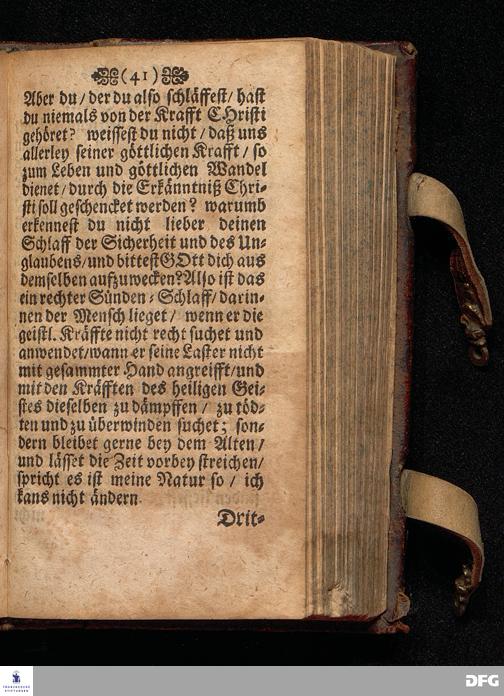 (41)
Aber du / der du also schläffest / hast
du niemals von der Krafft CHristi
gehöret? weissest du nicht / daß uns
allerley seiner göttlichen Krafft / so
zum Leben und göttlichen Wandel
dienet / durch die Erkänntniß Chri-
sti soll geschencket werden? warumb
erkennest du nicht lieber deinen
Schlaff der Sicherheit und des Un-
glaubens / und bittest GOtt dich aus
demselben aufzuwecken? Also ist das
ein rechter Sünden-Schlaff / darin-
nen der Mensch lieget / wenn er die
geistl. Kräffte nicht recht suchet und
anwendet / wann er seine Laster nicht
mit gesammter Hand angreifft / und
mit den Kräfften des heiligen Gei-
stes dieselben zu dämpffen / zu töd-
ten und zu überwinden suchet; son-
dern bleibet gerne bey dem Alten /
und lässet die Zeit vorbey streichen /
spricht es ist meine Natur so / ich
kans nicht ändern.
Drit-
FRANCKESCHE
STIFTUNGEN
DFG